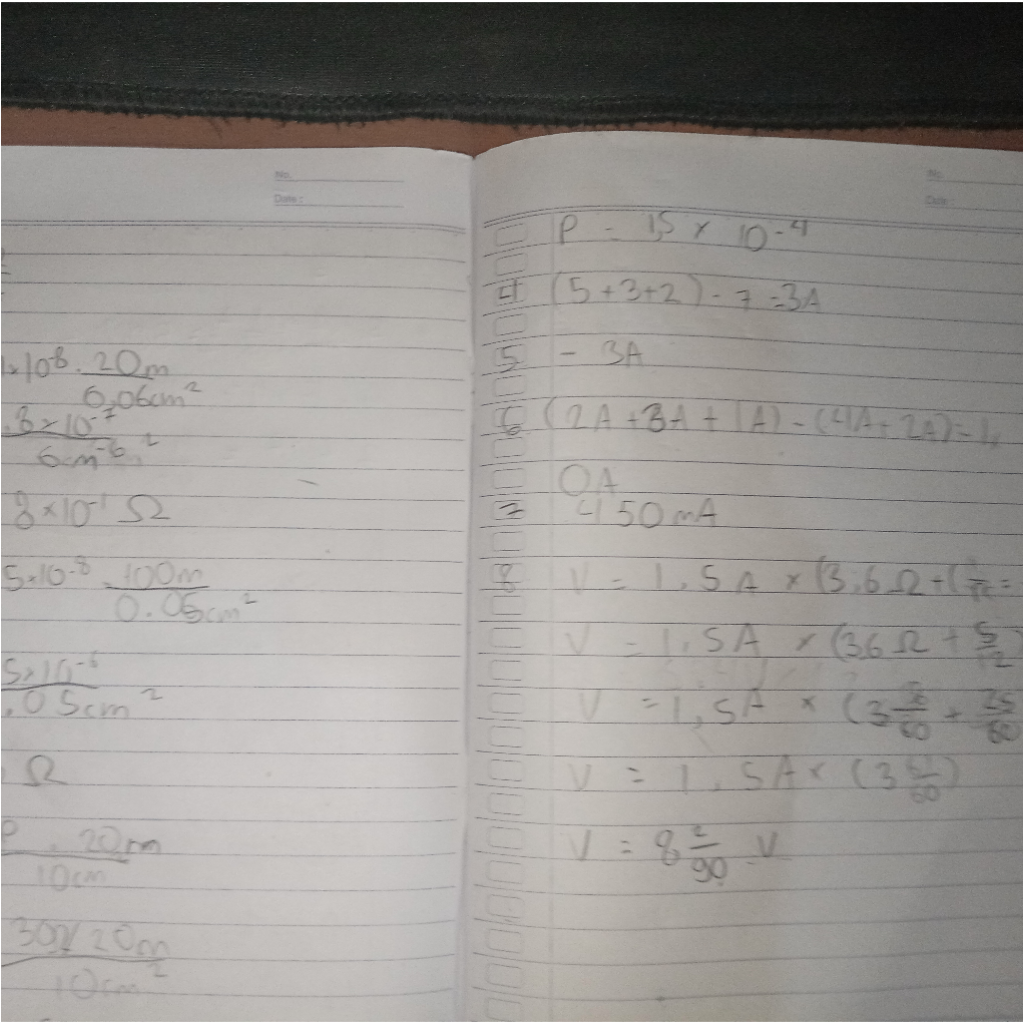 No.
Date :
10⁻⁸ . 20m
0,06cm²
8 × 10⁻⁷
6cm⁻⁶ ²
8 × 10⁻¹ Ω
5 × 10⁻⁸ . 100m
0.05cm²
5 × 10⁻⁶
.05cm²
Ω
. 20m
10cm
20m
10cm²
No
Date :
P = 1,5 × 10⁻⁴
4 (5+3+2) - 7 = 3A
5 - 3A
6 (2A + 3A + 1A) - (4A + 2A) =
0A
7 450 mA
8 V = 1.5A × (3.6Ω + (
V = 1,5A × (3,6Ω + 5/12
V = 1,5A × (3 /60 + 25/60
V = 1,5A × (3 /60)
V = 8 2/90 V